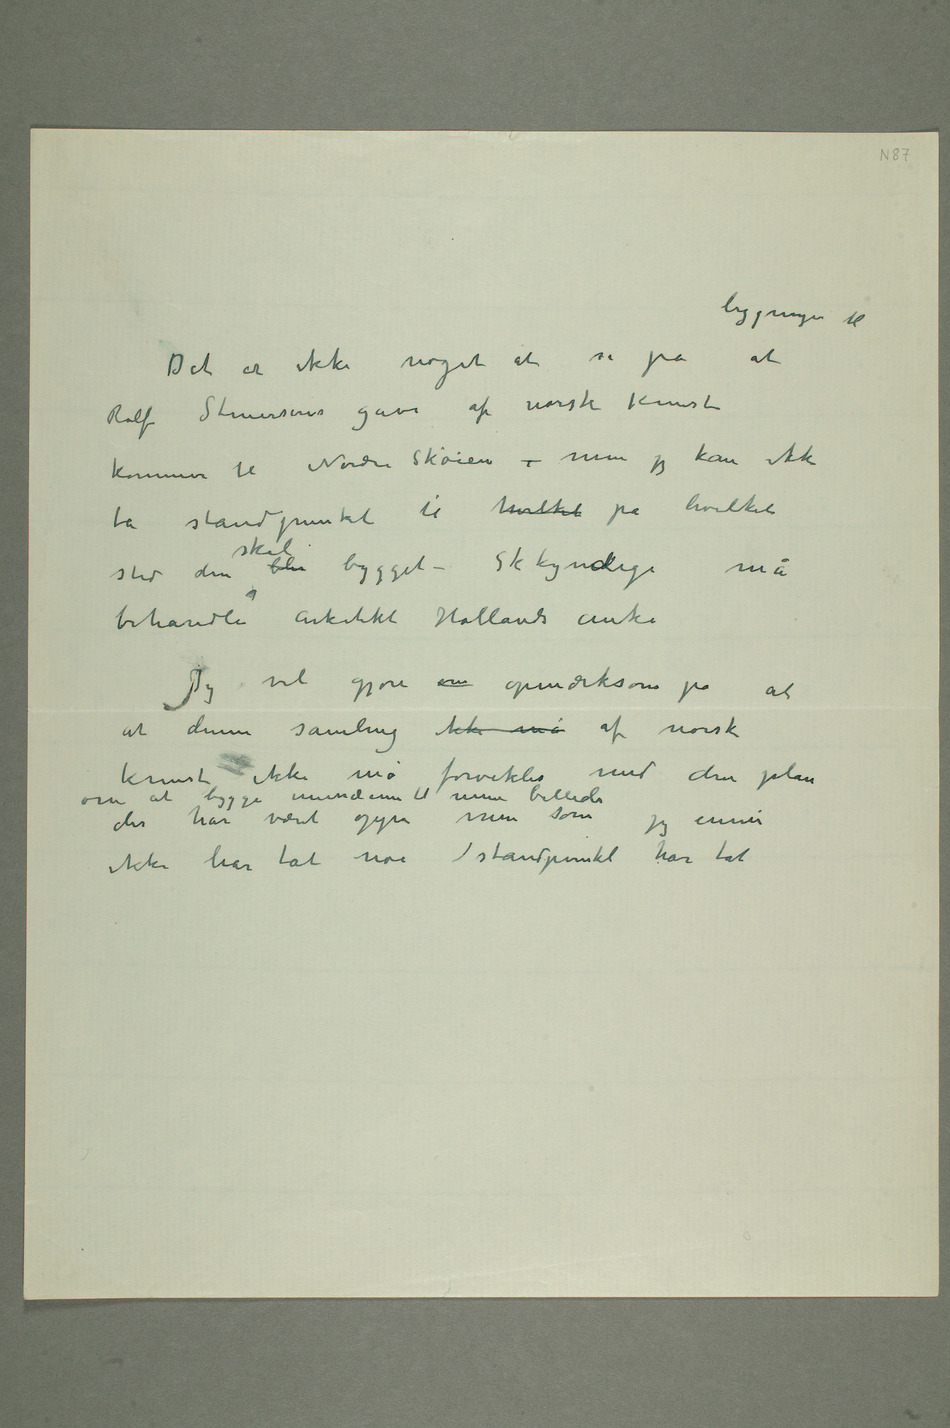 N 87
bygningen til
Det er ikke noget at si på at
Rolf Stenersens gave af norsk kunst
kommer til Nordre Skøien – men jg kan ikk
ta standpunktet til hvilket på hvilket
skal
sted den blir bygget – Skkyndige må
behandle arkitekt Hollands anke
Jeg vil gjøre om opmærksom på at
at denne samling ikke må af norsk
kunst ikke må forvekles med den plan
om at bygge til mine billeder
der har været oppe men som jg ennu
ikke har tat noe standpunkt har tat